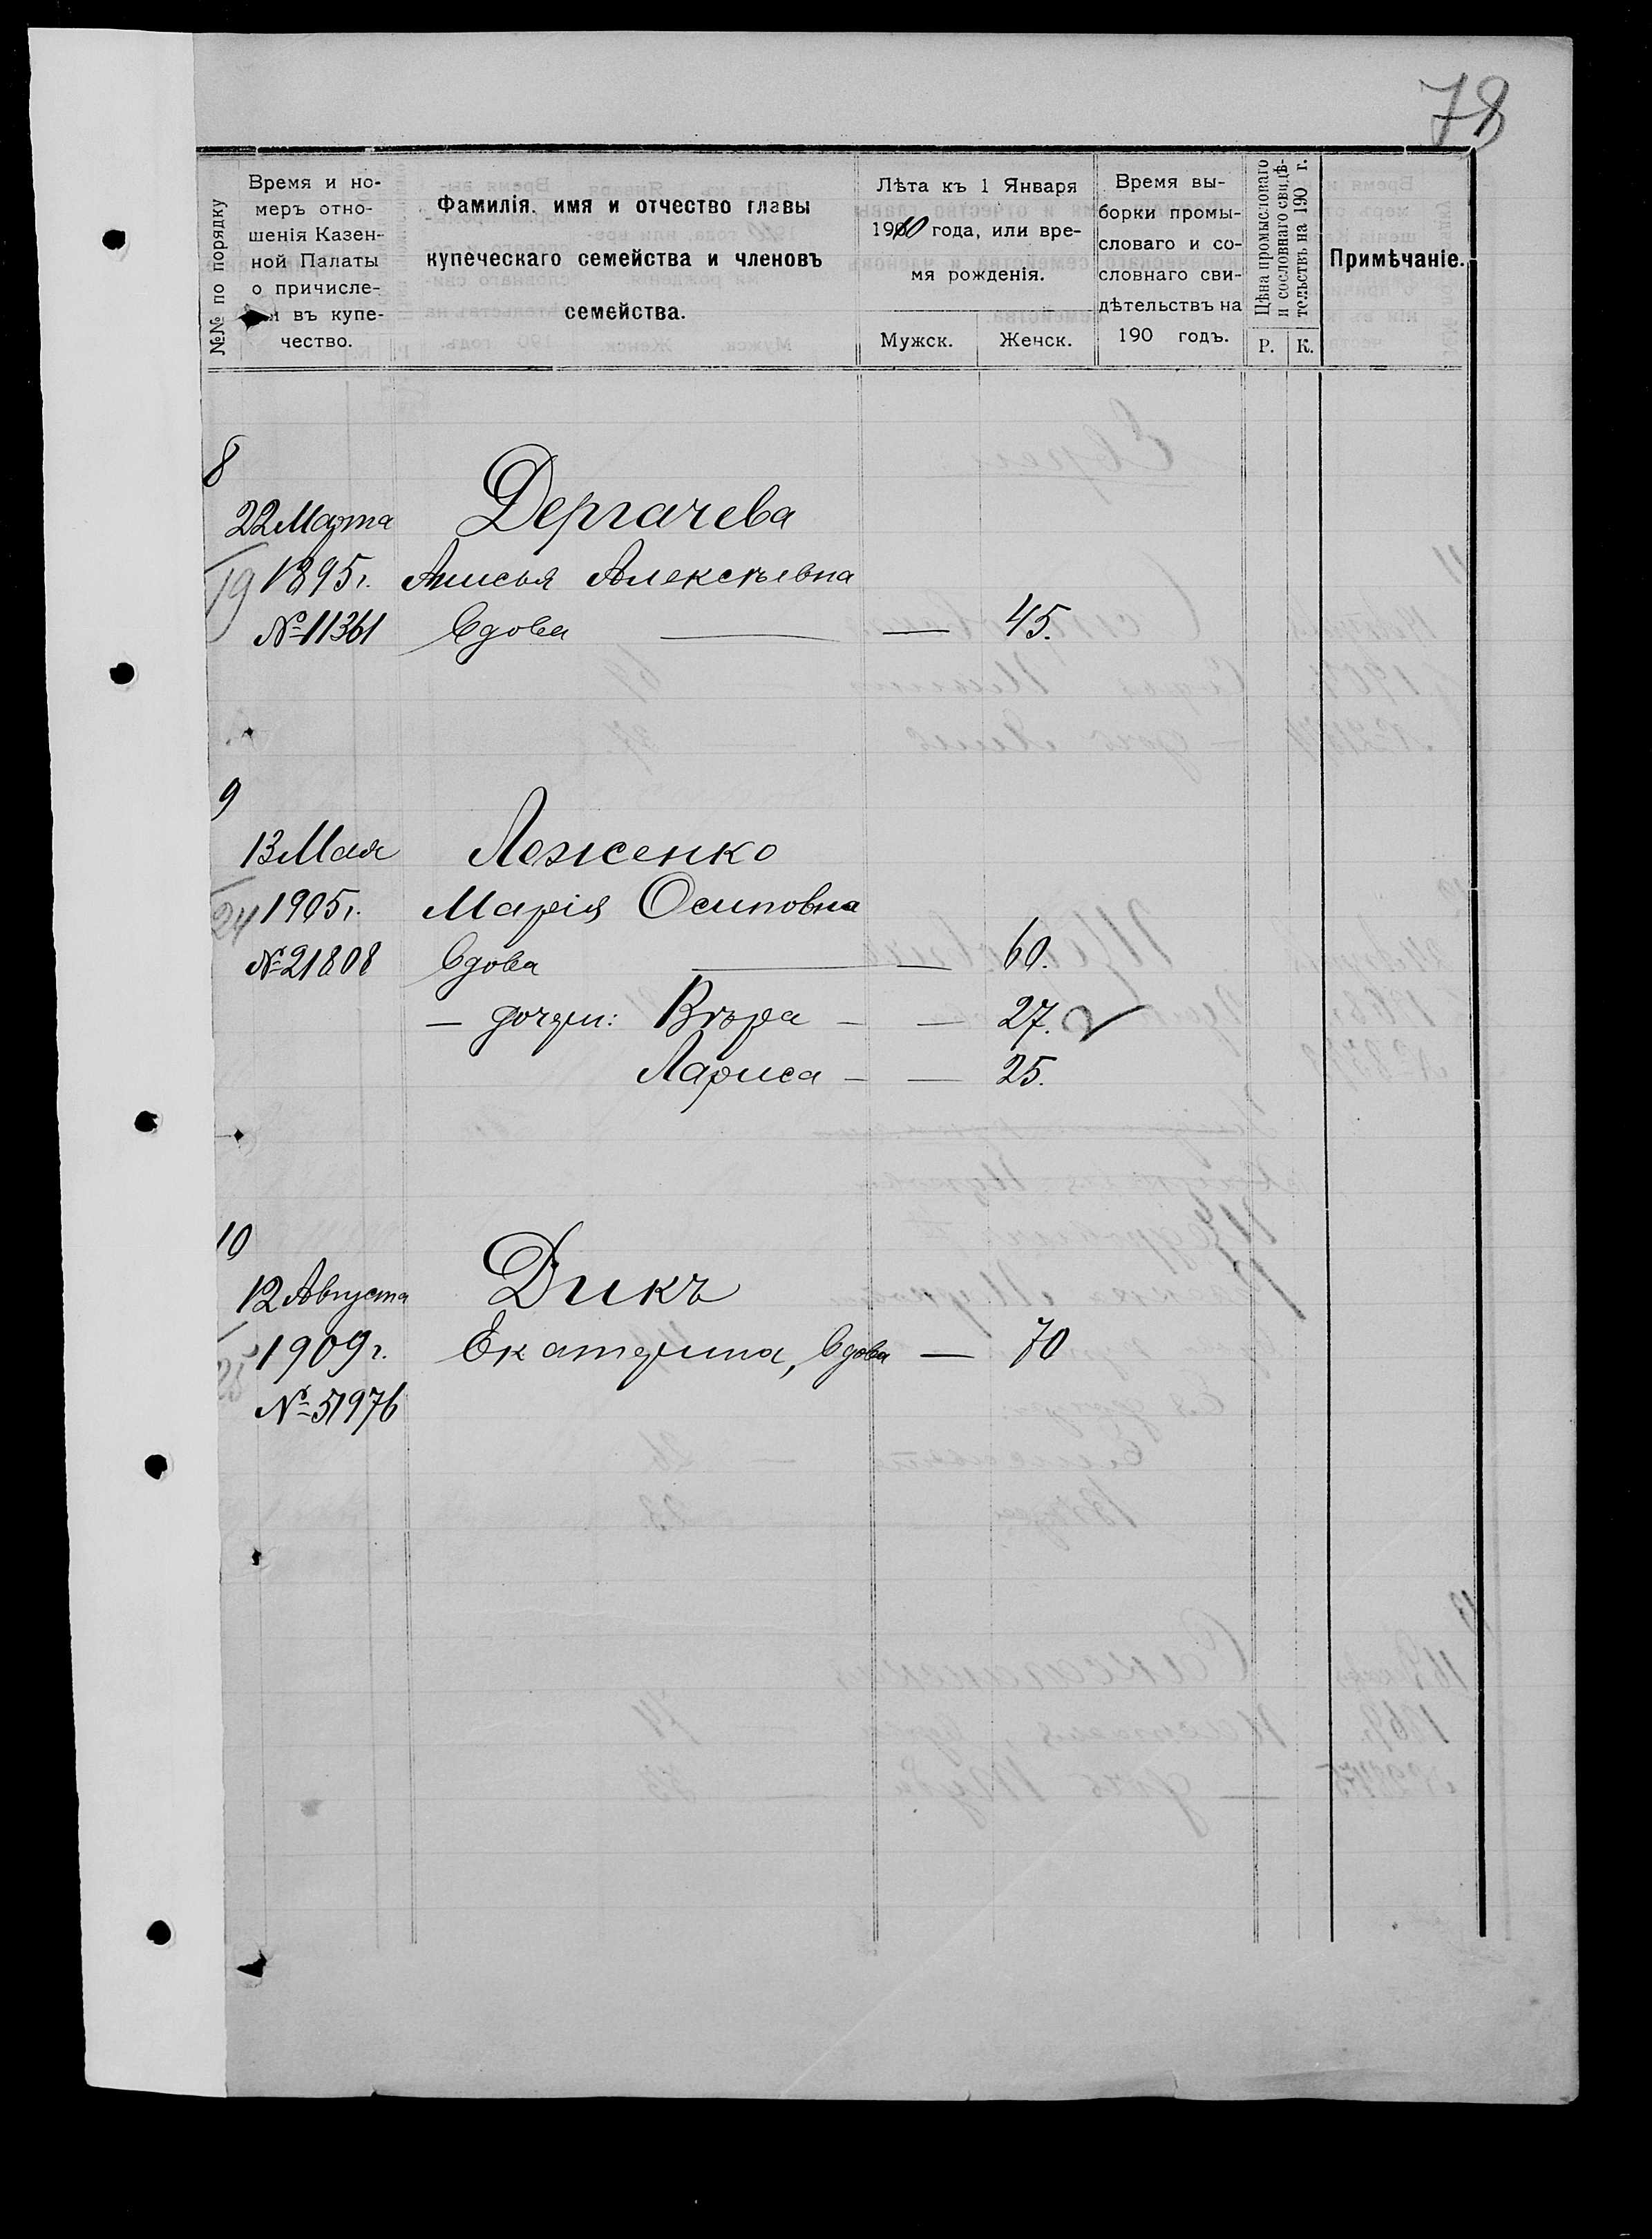 78
№№ по порядку
Время и но-
меръ отно-
шенія Казен-
ной Палаты
о причисле-
въ купе-
чество.
Фамилія, имя и отчество главы
купеческаго семейства и членовъ
семейства.
Лѣта къ 1 Января
1910 года, или вре-
мя рожденія.
Мужск. Женск.
Время вы-
борки промы-
словаго и со-
словнаго сви-
дѣтельствъ на
190 годъ.
Цѣна промысловаго
и сословнаго свидѣ-
тельствъ на 190 г.
Р. К.
Примѣчаніе.
8
22 Марта Дергачева
19 1895 г. Анисья Алексѣевна
№ 11361 Вдова — 45.
9
13 Мая Леженко
24 1905 г. Марія Осиповна
№ 21808 Вдова — 60.
— дочери: Вѣра — — 27.
Лариса — — 25.
10
12 Августа Дикъ
25 1909 г. Екатерина, вдова — 70
№ 51976